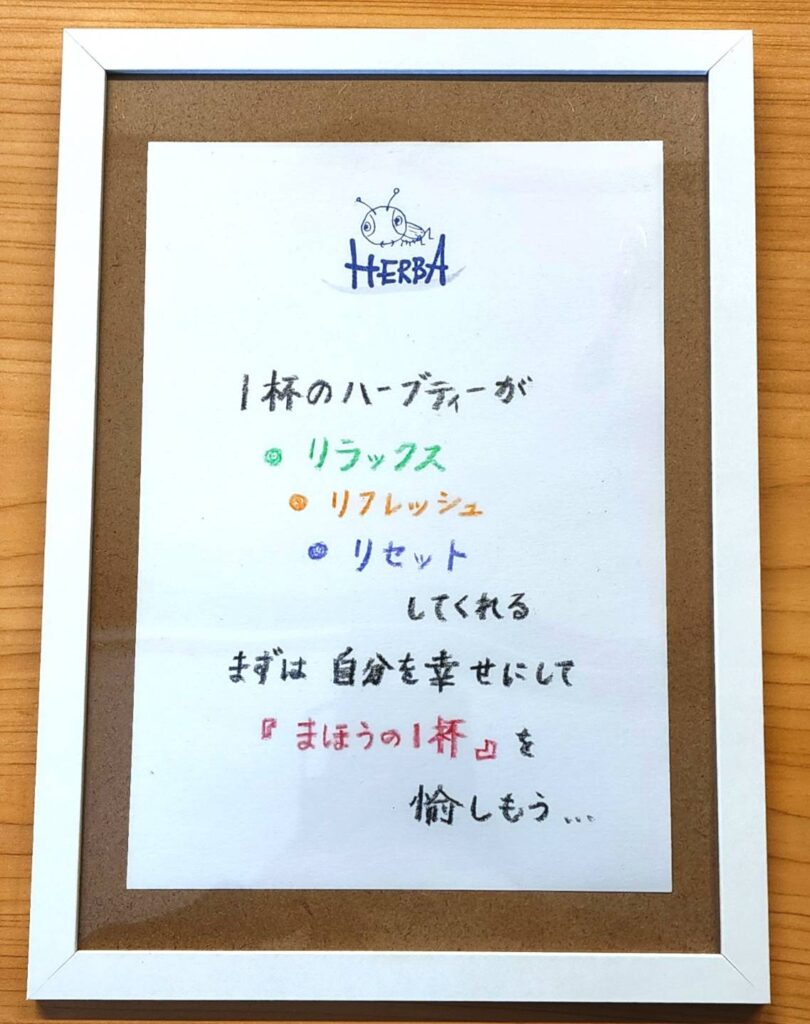 HERBA
1杯のハーブティーが
● リラックス
● リフレッシュ
● リセット
してくれる
まずは 自分を幸せにして
『まほうの1杯』を
愉しもう...